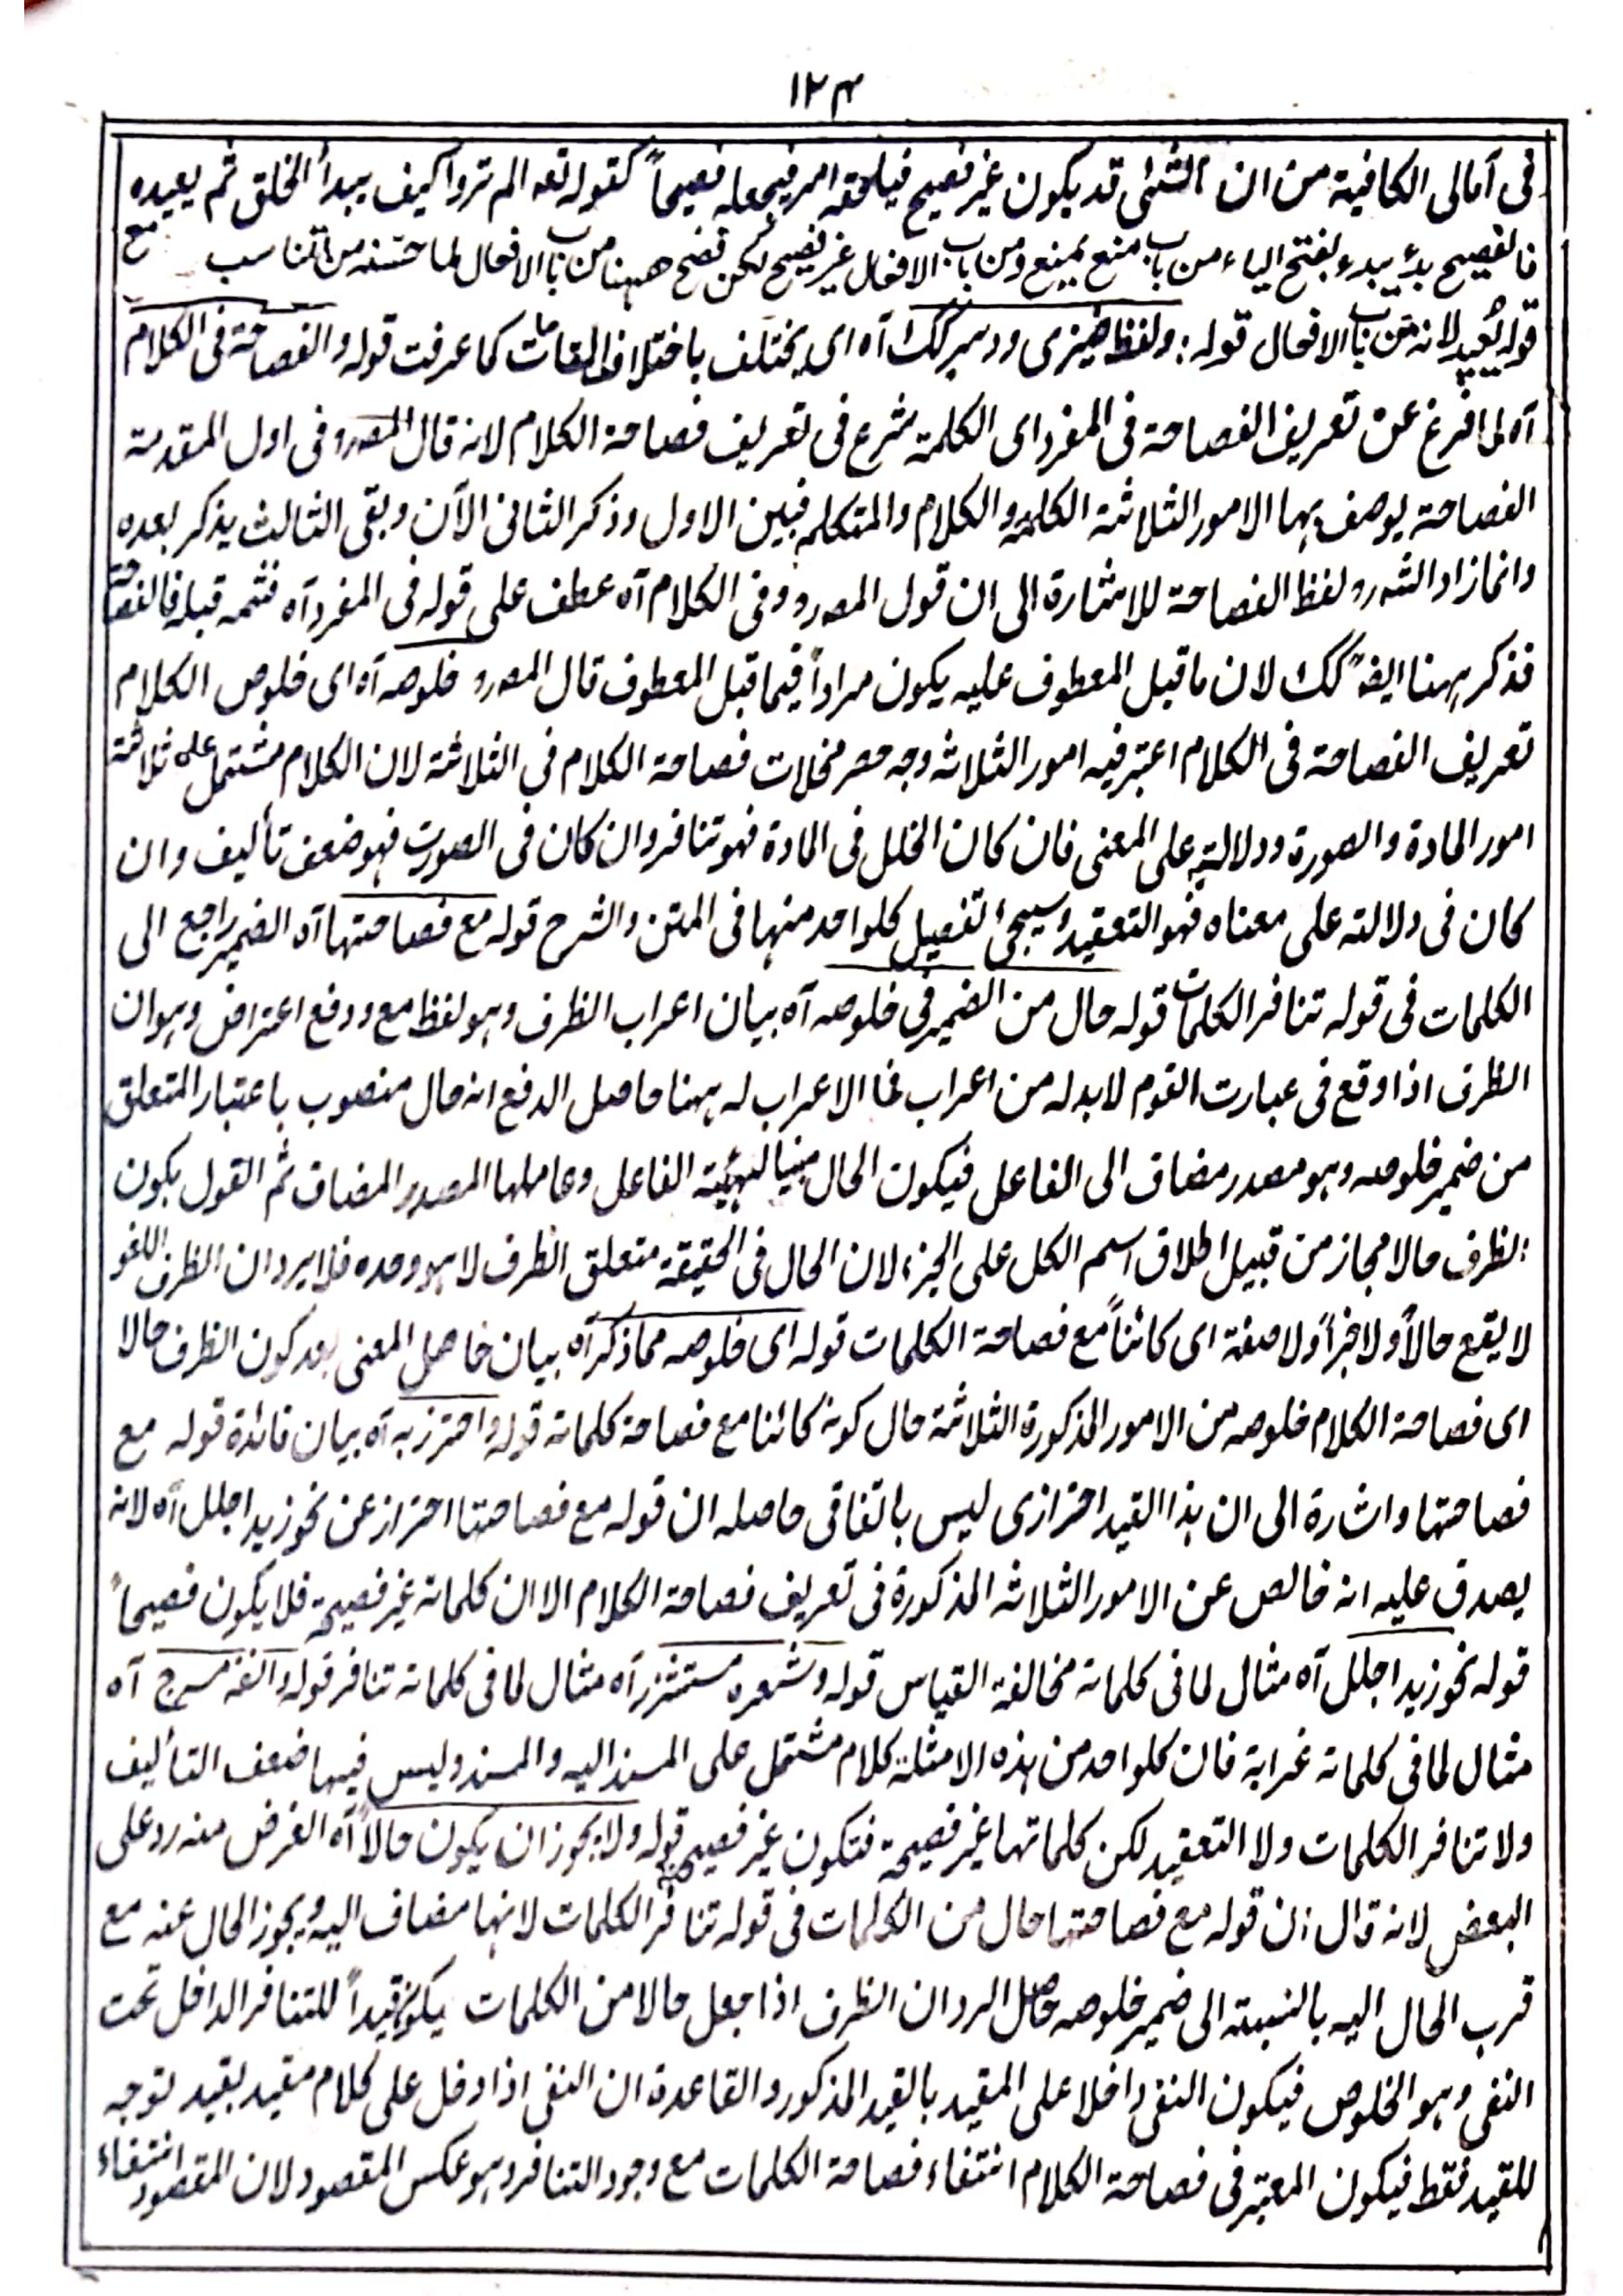 ١٢٣
فی آمالی الکافیة من ان الشئی قد یکون غیر فصیح فیلحقه امر فیجعله فصیحاً کقوله تعه الم تروا کیف یبدأ الخلق ثم یعیده
فالفصیح بدء یبدء بفتح الیاء من باب منع یمنع ومن باب الافعال غیر فصیح لکن فصح ههنا من باب الافعال لما حسّنه من التناسب مع
قوله یُعید لانه من باب الافعال قوله: ولفظ ضیزی ودسر کک آه ای یختلف باختلاف المقامات کما عرفت قوله والفصاحة فی الکلام
آه لما فرغ عن تعریف الفصاحة فی المفرد ای الکلمة شرع فی تعریف فصاحة الکلام لانه قال المصرو فی اول المقدمة
الفصاحة یوصف بها الامور الثلاثة الکلمة والکلام والمتکلم فبین الاول وذکر الثانی الآن وبقی الثالث یذکر بعده
وانما زاد الشرو لفظ الفصاحة للاشارة الی ان قول المصرو وفی الکلام آه عطف علی قوله فی المفرد آه فثمه قبله فالفصاحة
فذکر ههنا ایضاً کک لان ما قبل المعطوف علیه یکون مراداً فیما قبل المعطوف قال المصرو خلوصه آه ای خلوص الکلام
تعریف الفصاحة فی الکلام اعتبر فیه امور الثلاثه وجه حصر مخلات فصاحة الکلام فی الثلاثة لان الکلام مشتمل علی ثلاثة
امور المادة والصورة ودلالتہ علی المعنی فان کان الخلل فی المادة فهو تنافر وان کان فی الصورت فهو ضعف تألیف وان
کان فی دلالته علی معناه فهو التعقید وسیجئ تفصیل کلواحد منها فی المتن والشرح قوله مع فصاحتها آه الضمیر راجع الی
الکلمات فی قوله تنافر الکلمات قوله حال من الضمیر فی خلوصه آه بیان اعراب الظرف وهو لفظ مع ودفع اعتراض وهو ان
الظرف اذا وقع فی عبارت القوم لابد له من اعراب فما الاعراب له ههنا حاصل الدفع انه حال منصوب باعتبار المتعلق
من ضمیر خلوصه وهو مصدر مضاف الی الفاعل فیکون الحال مبینا لهیئة الفاعل وعاملها المصدر المضاف ثم القول بکون
الظرف حالا مجاز من قبیل اطلاق اسم الکل علی الجزء لان الحال فی الحقیقة متعلق الظرف لا هو وحده فلا یرد ان الظرف اللغو
لا یقع حالاً ولا خبراً ولا صفة ای کائناً مع فصاحة الکلمات قوله ای خلوصه مما ذکر آه بیان حاصل المعنی بعد کون الظرف حالا
ای فصاحة الکلام خلوصه من الامور المذکورة الثلاثة حال کونه کائنا مع فصاحة کلماته قوله واحترز به آه بیان فائدة قوله مع
فصاحتها واشارة الی ان هذا القید احترازی لیس باتفاقی حاصله ان قوله مع فصاحتها احتراز عن نحو زید اجلل آه لانه
یصدق علیه انه خالص عن الامور الثلاثه المذکورة فی تعریف فصاحة الکلام الا ان کلماته غیر فصیحة فلا یکون فصیحاً
قوله نحو زید اجلل آه مثال لما فی کلماته مخالفة القیاس قوله وشعره مستشزر آه مثال لما فی کلماته تنافر قوله وانفه مسرج آه
مثال لما فی کلماته غرابة فان کلواحد من هذه الامثلة کلام مشتمل علی المسند الیه والمسند ولیس فیها ضعف التألیف
ولا تنافر الکلمات ولا التعقید لکن کلماتها غیر فصیحة فتکون غیر فصیحة قوله ولا یجوز ان یکون حالاً آه الغرض منه رد علی
البعض لانه قال ان قوله مع فصاحتها حال من الکلمات فی قوله تنافر الکلمات لانها مضاف الیه ویجوز الحال عنه مع
قرب الحال الیه بالنسبة الی ضمیر خلوصه حاصل الرد ان الظرف اذا جعل حالا من الکلمات یکون قیداً للتنافر الداخل تحت
النفی وهو الخلوص فیکون النفی داخلا علی المقید بالقید المذکور والقاعدة ان النفی اذا دخل علی کلام مقید بقید توجه
للقید فقط فیکون المعتبر فی فصاحة الکلام انتفاء فصاحة الکلمات مع وجود التنافر وهو عکس المقصود لان المقصود انتفاء